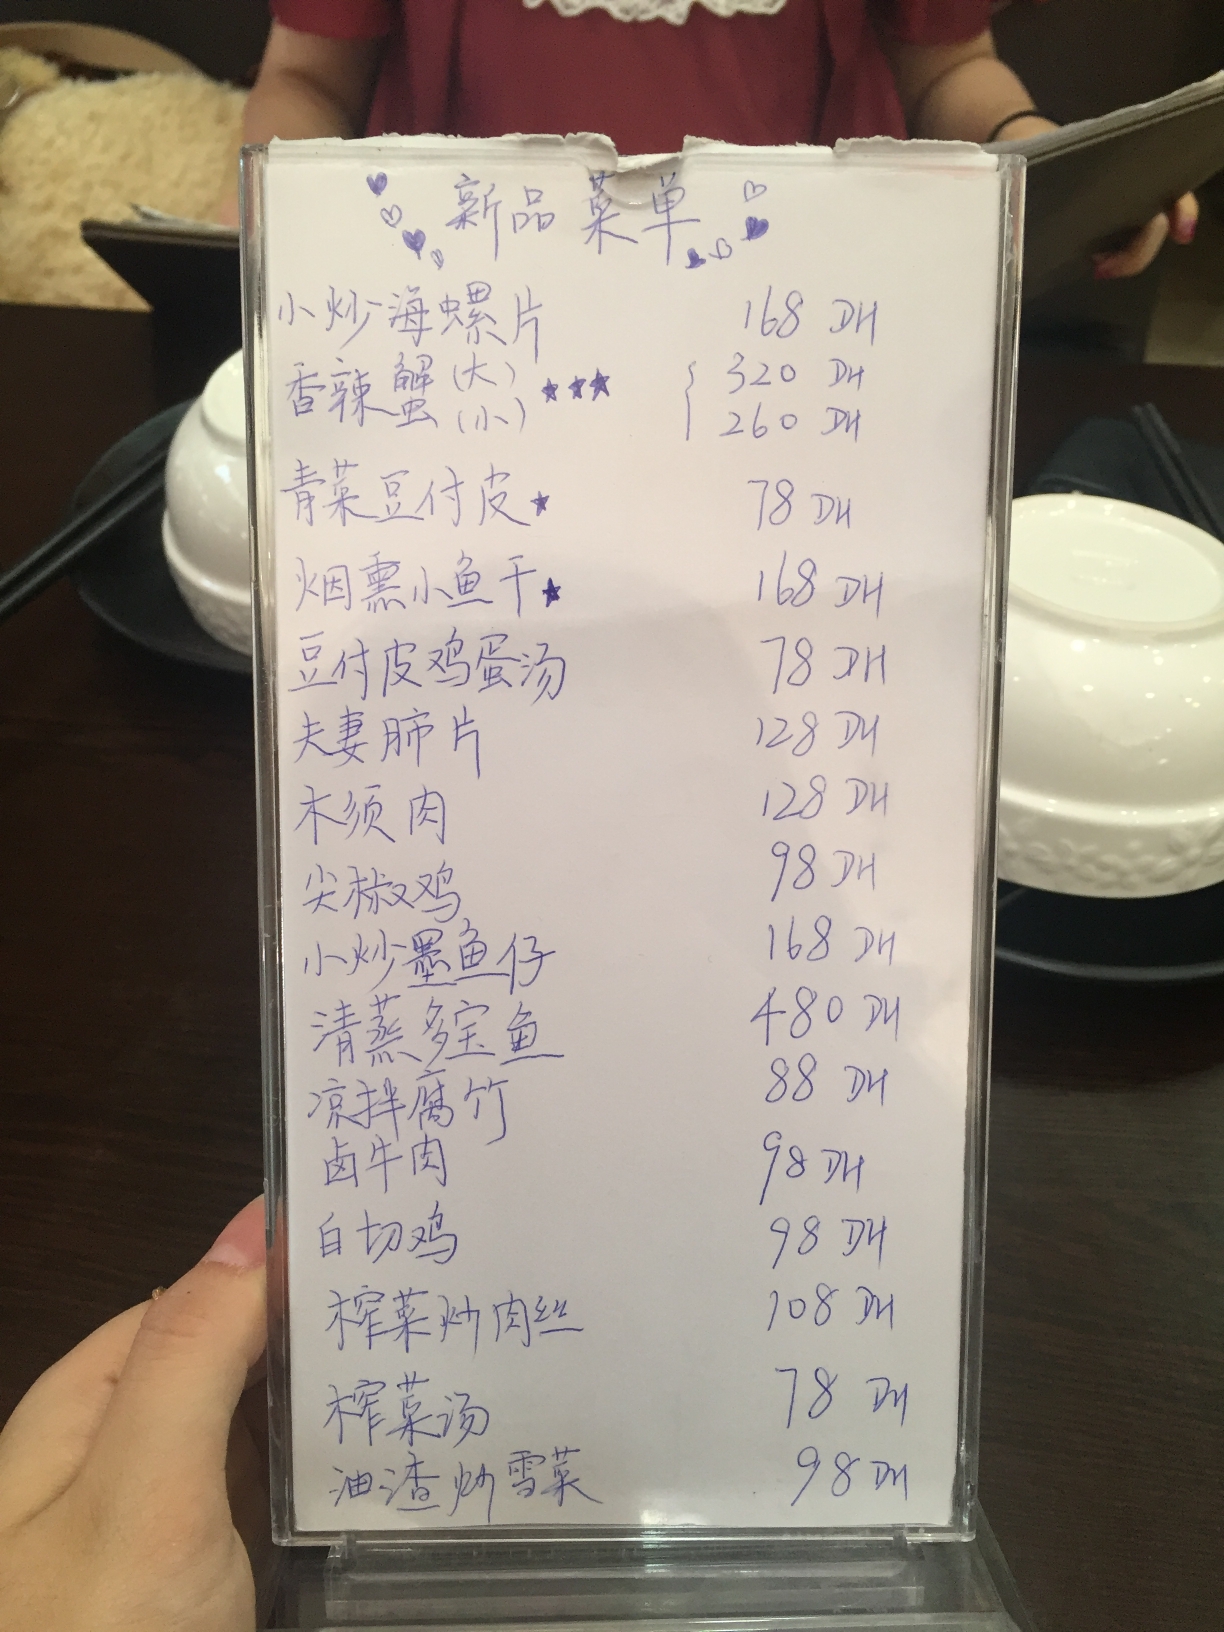 新品菜单
小炒海螺片 168 DH
香辣蟹(大) ★★★ 320 DH
(小) 260 DH
青菜豆付皮★ 78 DH
烟熏小鱼干★ 168 DH
豆付皮鸡蛋汤 78 DH
夫妻肺片 128 DH
木须肉 128 DH
尖椒鸡 98 DH
小炒墨鱼仔 168 DH
清蒸多宝鱼 480 DH
凉拌腐竹 88 DH
卤牛肉 98 DH
白切鸡 98 DH
榨菜炒肉丝 108 DH
榨菜汤 78 DH
油渣炒雪菜 98 DH